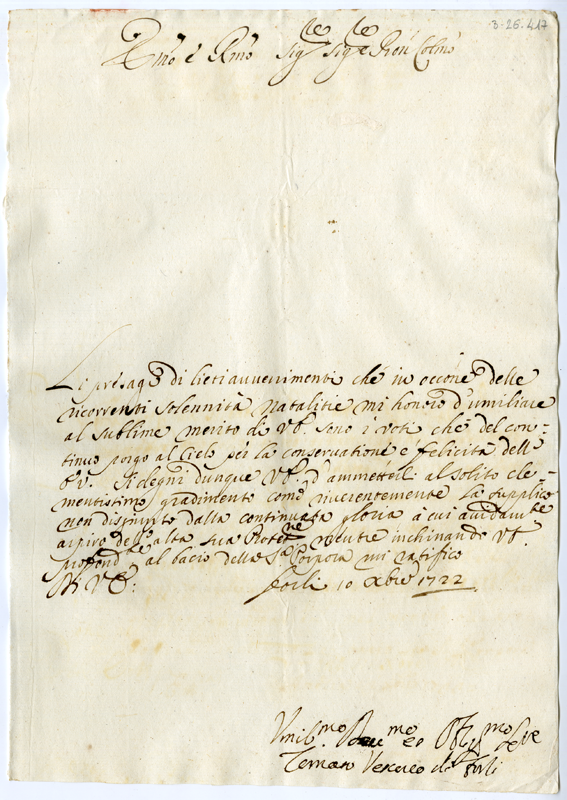 3-26.417
Emo e Rmo Sigre Sigre Pron Colmo
Le presaghe di lieti avvenimenti che in occone delle
ricorrenti solennità natalitie mi honoro d'umiliare
al sublime merito di VE. sono i voti che del con-
tinuo porgo al Cielo per la conservatione e felicità dell'
E.V. Si degni dunque VE. d'ammetterli al solito cle-
mentissimo gradimento come riverentemente la supplico
non disgiunto dalla continuata gloria à cui avidamte
aspiro dell'alta sua Protene, mentre inchinando VE.
profondte al bacio della Sa. Porpora mi ratifico
Di VE:
Forlì 10 Xbre 1722
Umilmo Devmo ed Obligmo Sre
Tomaso Vescovo di Forlì